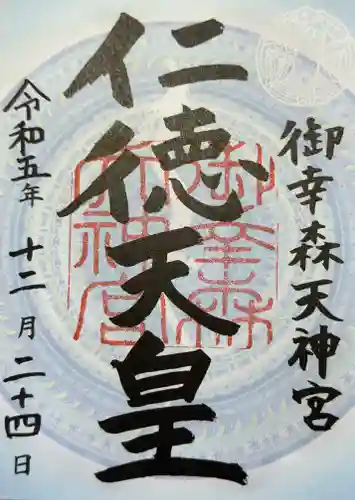 御幸森天神宮
仁徳天皇
御幸森
天神宮
令和五年 十二月二十四日